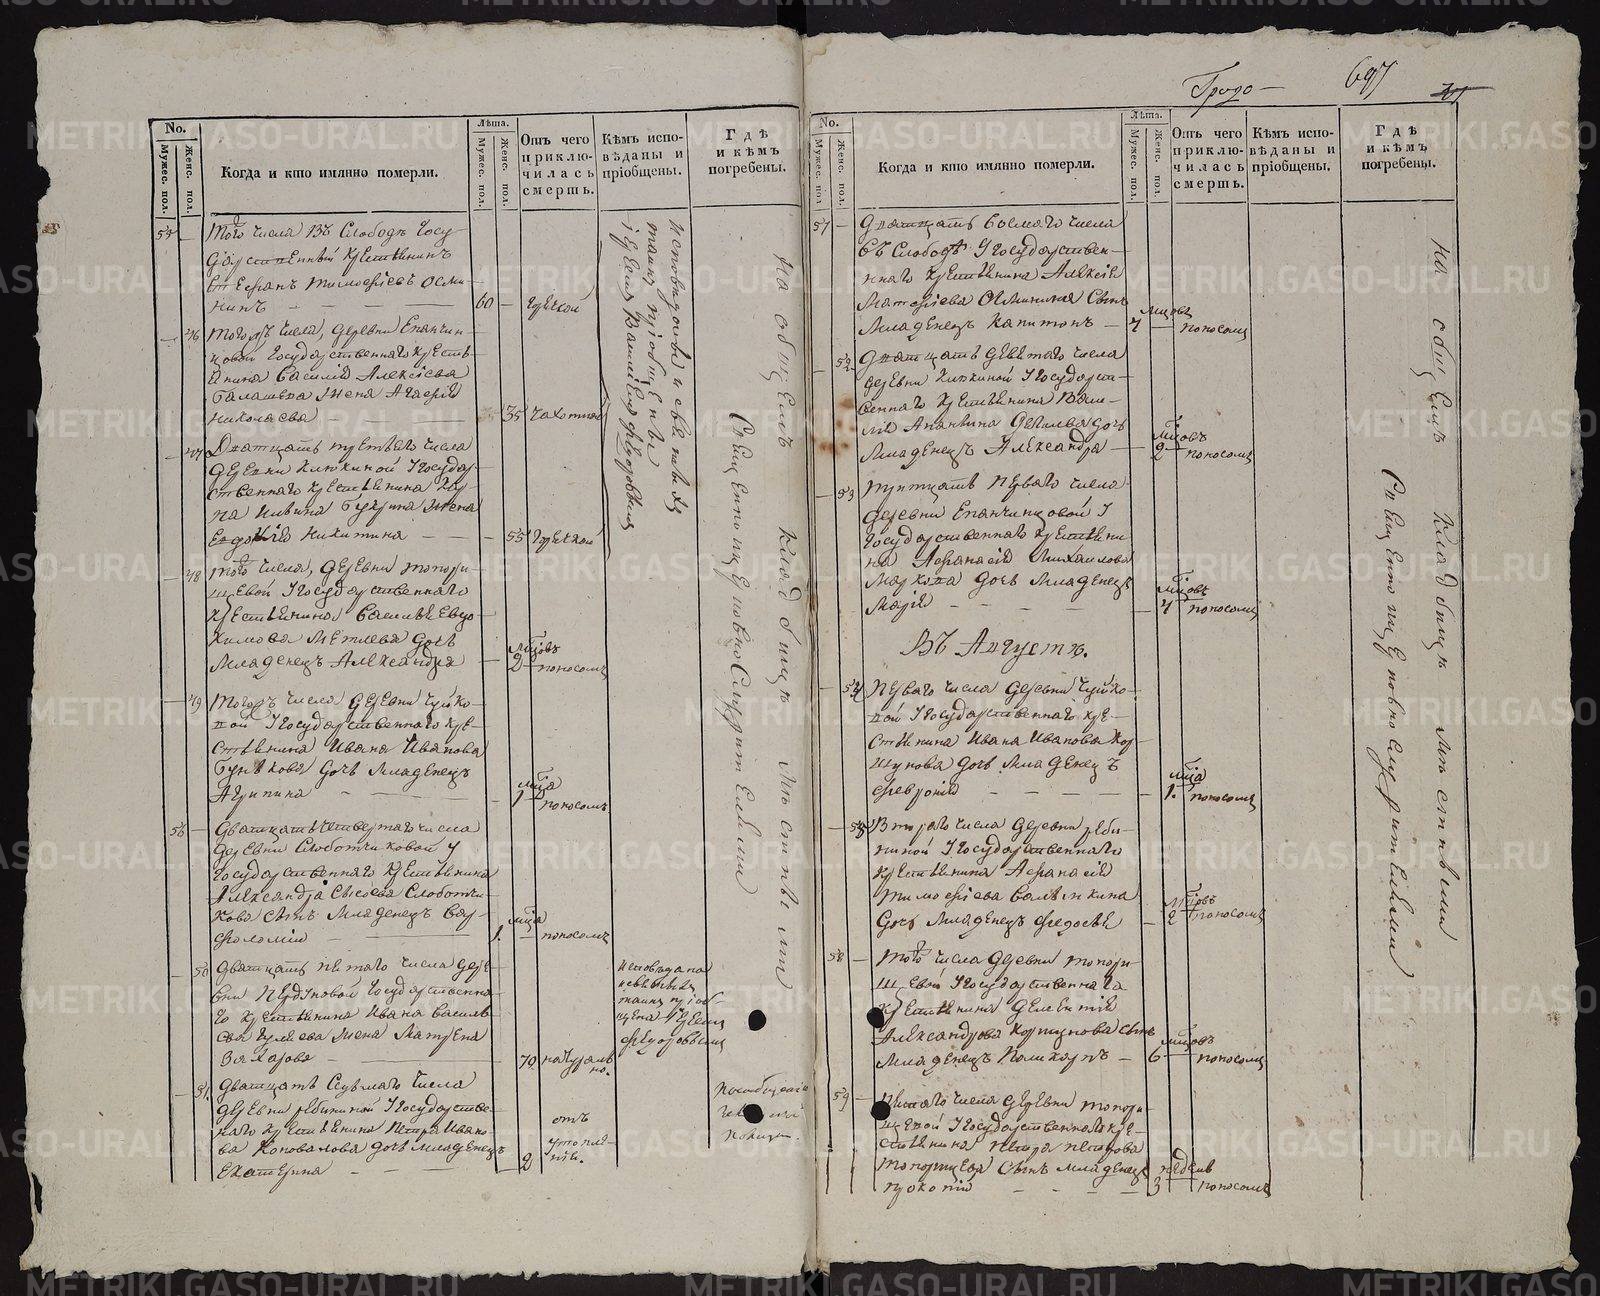 Градо-
697
No.
Мужес. пол.
Женс. пол.
Когда и кто имянно померли.
Лѣта.
Мужес. пол.
Женс. пол.
Отъ чего
приклю-
чилась
смерть.
Кѣмъ испо-
вѣданы и
пріобщены.
Гдѣ
и кѣмъ
погребены.
Того числа въ Слободѣ Госу-
дарственный крестьянинъ
Стефанъ Тимофѣевъ Осми-
нинъ — 60 — горячкой
46 Тогожъ числа, деревни Епанчин-
цовой Государственнаго кресть-
янина Василія Алексѣева
Балашева жена Агафія
Николаева — 35 чахоткой
47 Дватцать третьяго числа
деревни Клюкиной Государ-
ственнаго крестьянина
жена
Евдокія Никитина — 55 горячкой
48 Того числа, деревни Топори-
щевой Государственнаго
крестьянина Василья Евдо-
кимова Метлева дочь
младенецъ Александра — мѣсяцовъ 2 — поносомъ
49 Тогожъ числа деревни Чуйко-
вой Государственнаго кре-
стьянина Ивана Иванова
Бунькова дочь младенецъ
Агрипина — 1 — поносомъ
56 Дватцать четвертаго числа
деревни Слободчиковой
Государственнаго крестьянина
Александра Сысоева Слободчи-
кова сынъ младенецъ Вар-
фоломій — 1. — поносомъ
50 Дватцать пятаго числа дере-
вни Государственна-
го крестьянина Ивана Василь-
ева жена Матрена
Захарова — 70 натураль-
но.
51. Дватцать седьмаго числа
деревни Рябининой Государстве-
наго крестьянина Петра Ивано-
ва Коновалова дочь младенецъ
Екатерина — 2 отъ
утопле-
нія.
Исповѣдованы и святыхъ
таинъ пріобщены
іереемъ Василіемъ Федоровымъ
Исповѣдана
и святыхъ
таинъ пріоб-
щена іереемъ
Федоровымъ
На общемъ кладбищѣ мѣстнымъ
Священноцерковнослужителями
No.
Мужес. пол.
Женс. пол.
Когда и кто имянно померли.
Лѣта.
Мужес. пол.
Женс. пол.
Отъ чего
приклю-
чилась
смерть.
Кѣмъ испо-
вѣданы и
пріобщены.
Гдѣ
и кѣмъ
погребены.
57 — Дватцать восмаго числа
въ Слободѣ Государствен-
ннаго крестьянина Алексѣя
Матвѣева Осминина сынъ
младенецъ Капитонъ — 7 — поносомъ
— 52 Дватцать девятаго числа
деревни Клюкиной Государст-
веннаго крестьянина Васи-
лія дочь
младенецъ Александра — 2 — поносомъ
— 53 Тритцать перваго числа
деревни Епанчинцовой
Государственнаго крестьяни-
на Афанасія Михаилова
Маркова дочь младенецъ
Марія — 4 поносомъ
Въ Августѣ.
— 54 Перваго числа деревни Чуйко-
вой Государственнаго кре-
стьянина Ивана Иванова Кор-
шунова дочь младенецъ
Февронія — 1. поносомъ
— 55 Втораго числа деревни Ряби-
ниной Государственнаго
крестьянина Афанасія
Тимофѣева
дочь младенецъ Федосья — 2 поносомъ
58 — Того числа деревни Топори-
щевой Государственнаго
крестьянина Дементія
Александрова сынъ
младенецъ Поликарпъ — 6 — поносомъ
59 — Пятаго числа деревни Топори-
щевой Государственнаго кре-
стьянина Петра Петрова
Топорищева сынъ младенецъ
Прокопій — недель 3 — поносомъ
На общемъ кладбищѣ мѣстнымъ
Священноцерковнослужителями
METRIKI.GASO-URAL.RU